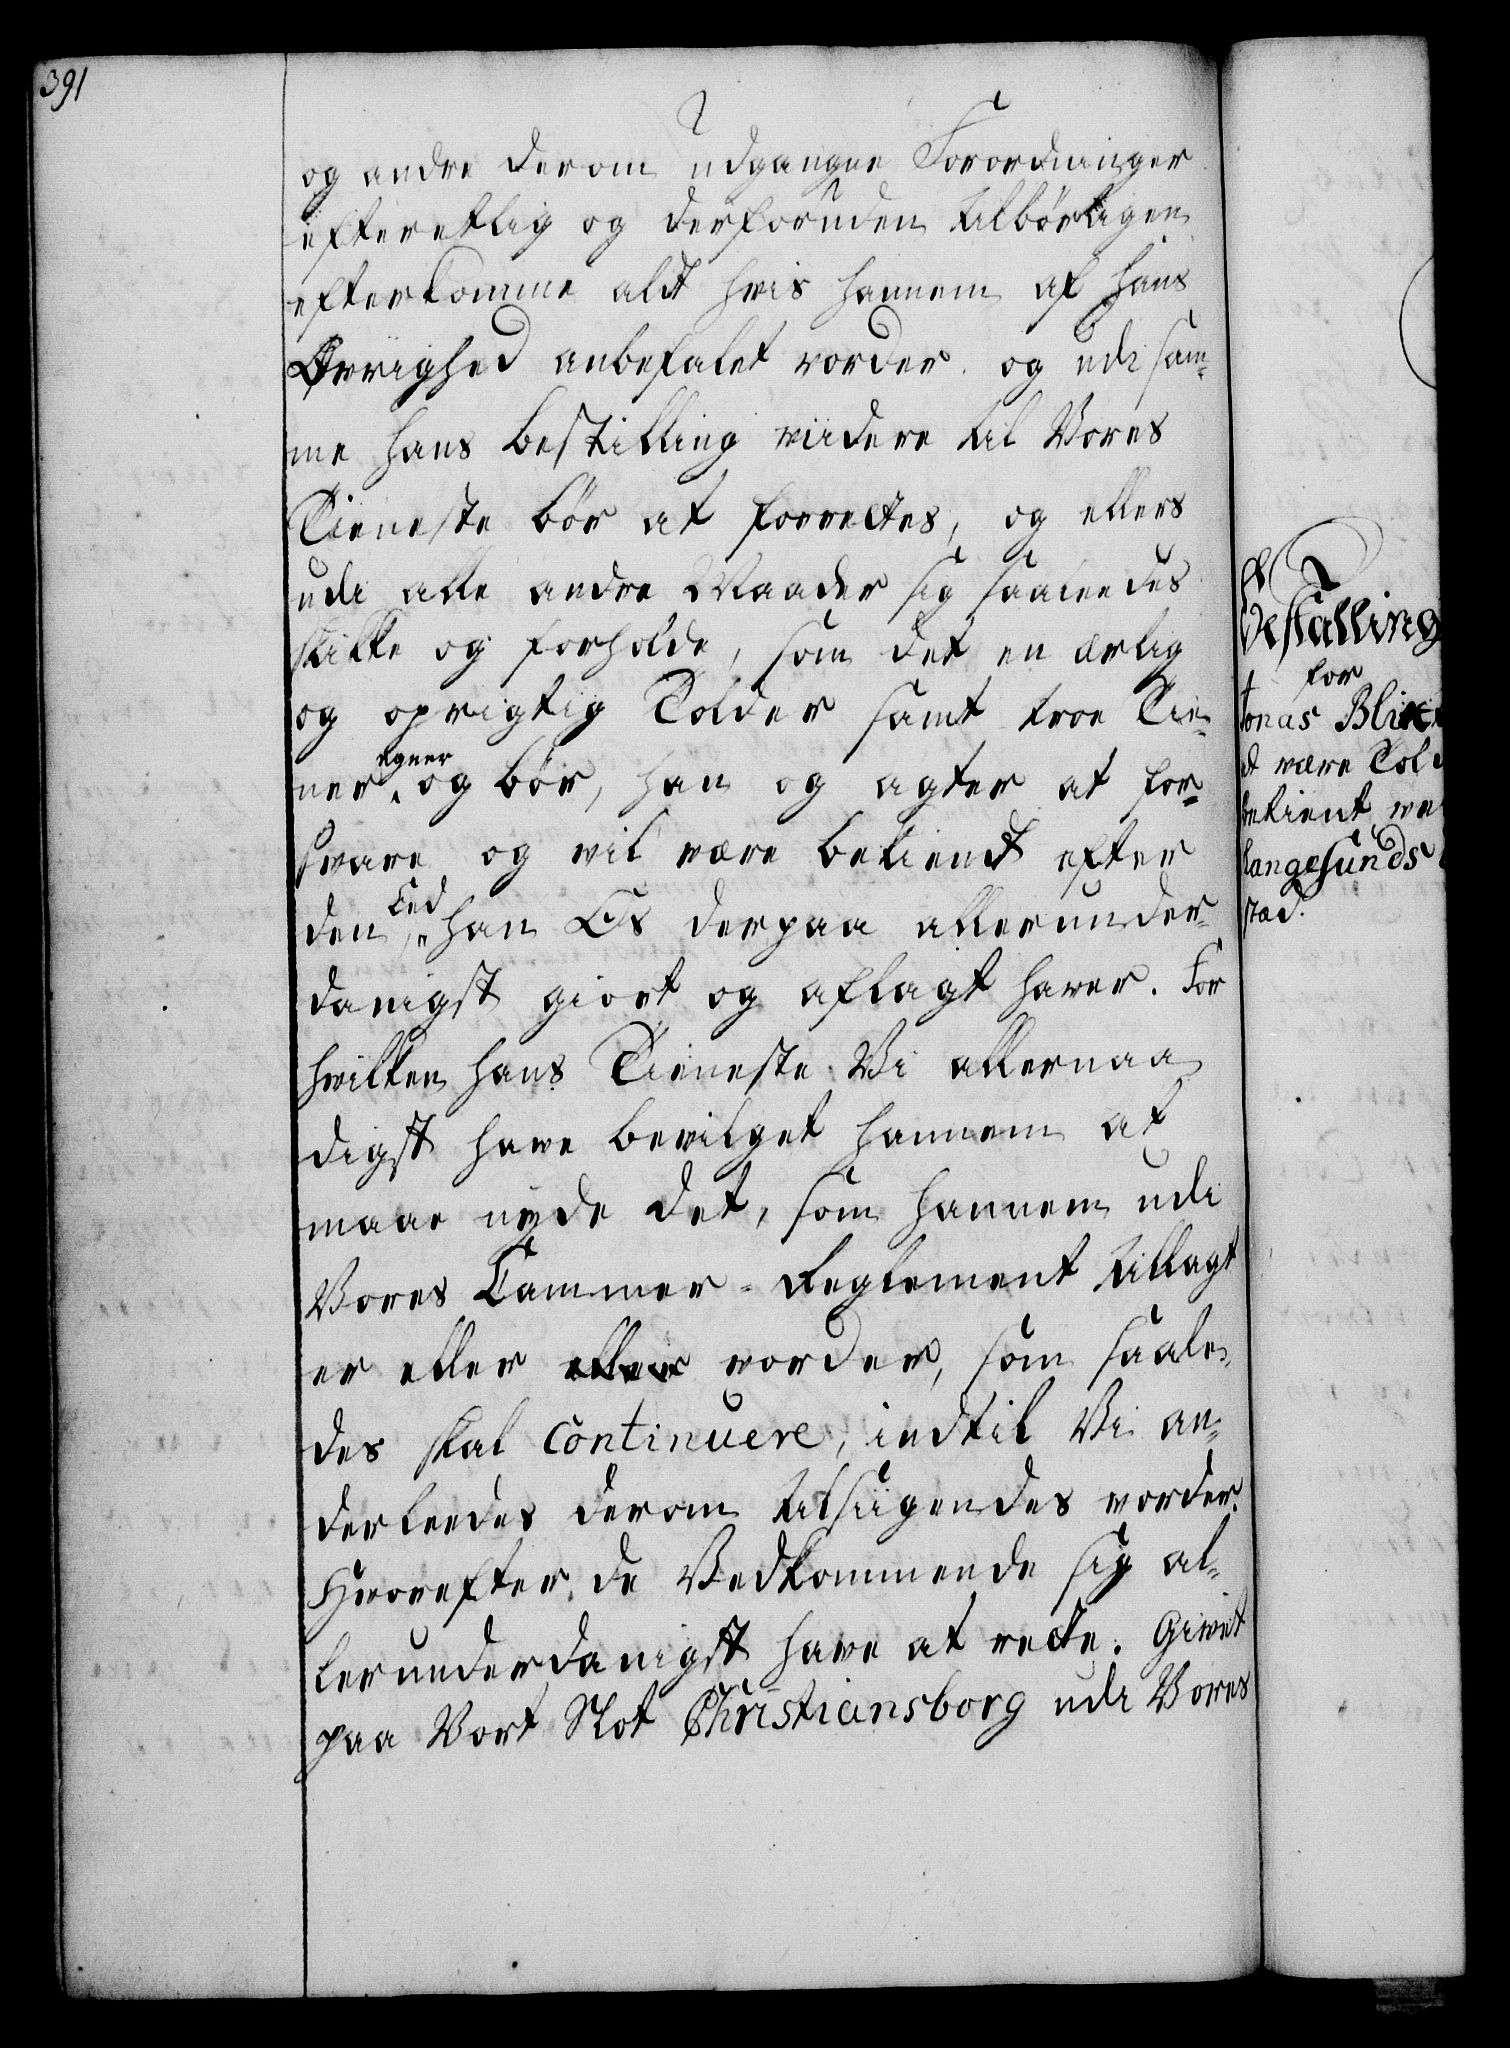 391
og andre derom udgangne Forordninger
efterettlig og derforuden tilbørligen
efterkomme alt hvis hannem af hans
Øvrighed anbefalet vorder. og udi sam-
me hans bestilling viidere til Vores
Tieneste bør at forrettes, og ellers
udi alle andre Maader sig saaleedes
skikke og forholde, som det en ærlig
og oprigtig Tolder samt troe Tie-
egner
ner og bør, han og agter at for-
svare og vil være bekiendt efter
Eed
den han Os derpaa allerunder-
danigst giort og aflagt haver. For
hvilken hans Tieneste Vi allernaa
digst have bevilget hannem at
maae nyde det, som hannem udi
Vores Cammer-Reglement tillagt
er eller vorder, som saale-
des skal Continuere, indtil Vi an-
derleedes derom tilsiigendes vorder.
Hvorefter de Vedkommende sig al-
lerunderdanigst have at rette. Givet
paa Vort Slot Christiansborg udi Vores
Bestalling
for
Jonas Blix
at være Told
betient ve
Langesunds
stæd.